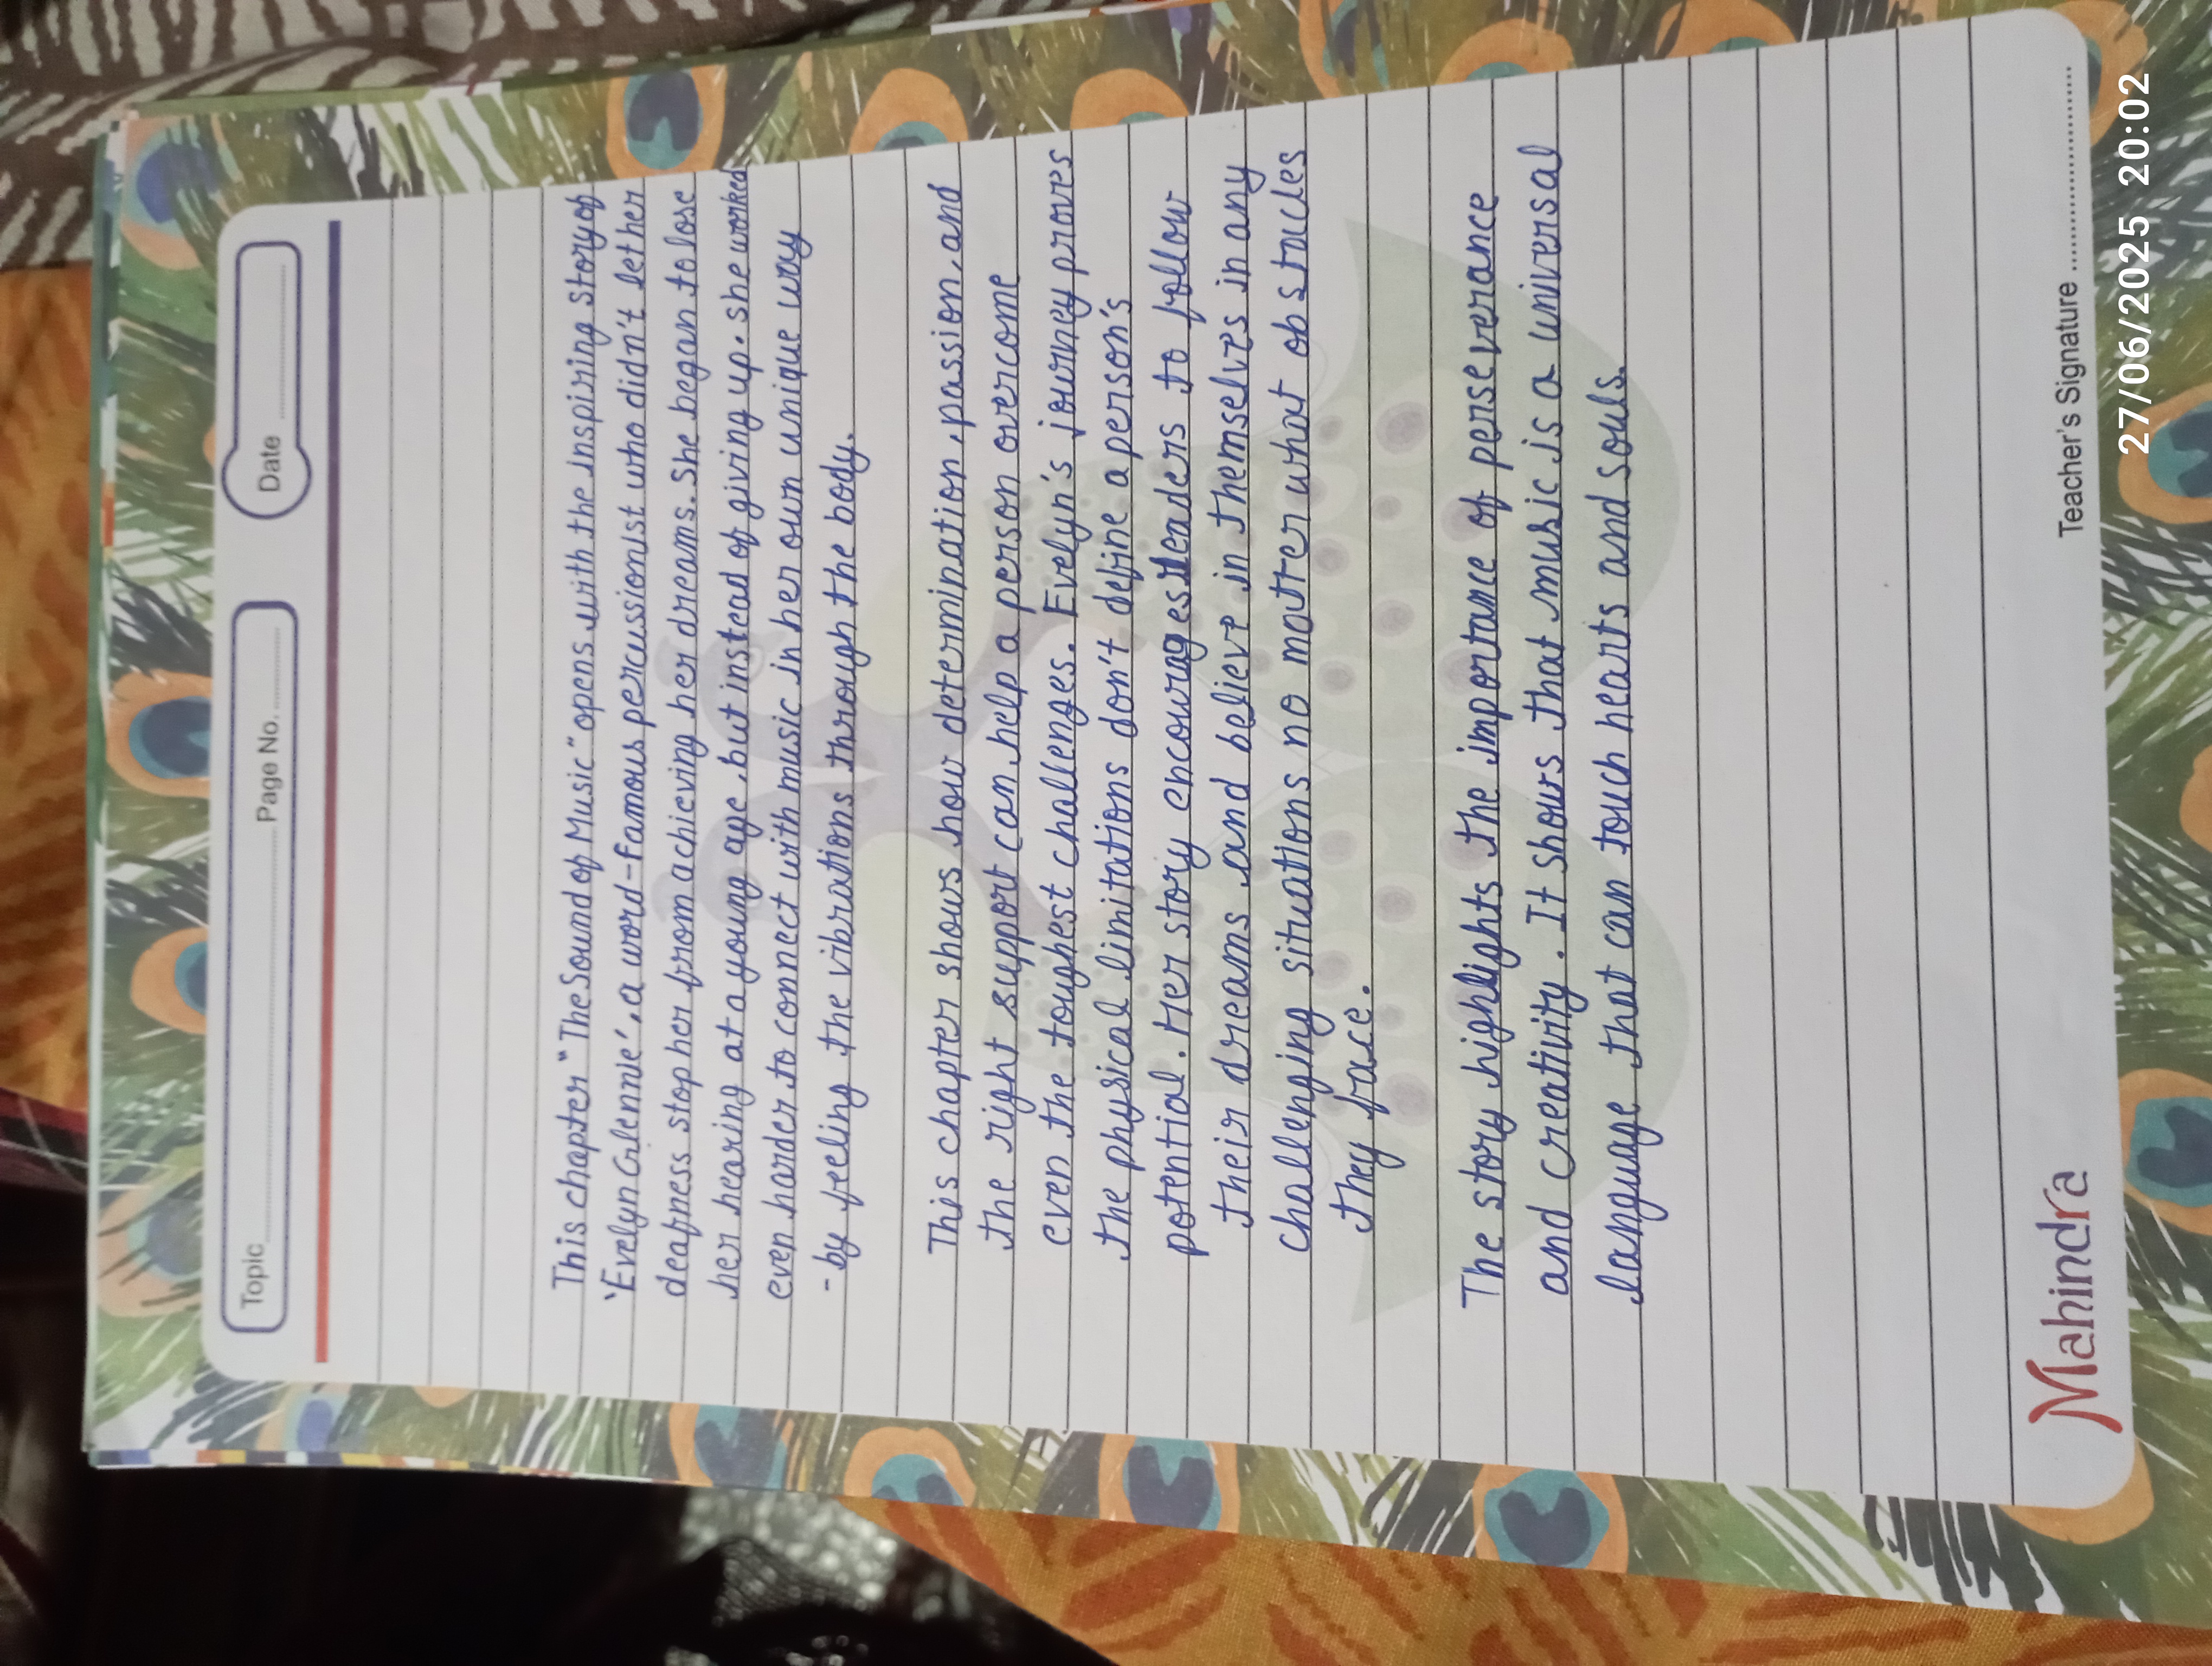 Topic Page No. Date
This chapter "The Sound of Music" opens with the inspiring story of
'Evelyn Glennie', a word-famous percussionist who didn't let her
deafness stop her from achieving her dreams. She began to lose
her hearing at a young age, but instead of giving up. she worked
even harder to connect with music in her own unique way
- by feeling the vibrations through the body.
This chapter shows how determination, passion, and
the right support can help a person overcome
even the toughest challenges. Evelyn's journey proves
the physical limitations don't define a person's
potential. Her story encourages readers to follow
their dreams and believe in themselves in any
challenging situations no matter what obstacles
they face.
The story highlights the importance of perseverance
and creativity. It shows that music is a universal
language that can touch hearts and souls.
Mahindra Teacher's Signature
27/06/2025 20:02